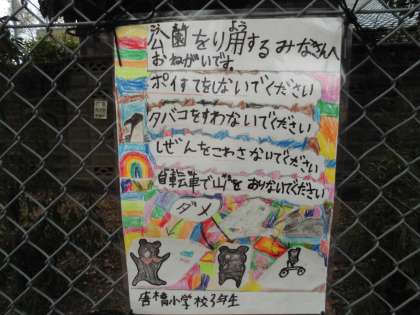 公園をり用するみなさんへ
よう
おねがいです。
ポイすてをしないでください
タバコをすわないでください
しぜんをこわさないでください
自転車で山をおりないでください
ダメ
唐橋小学校3年生